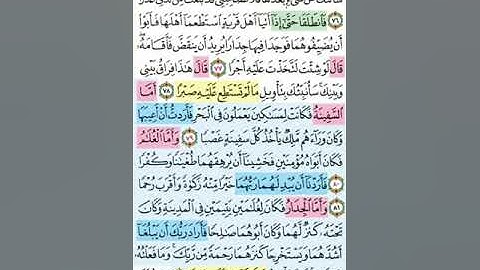 ٧٦ فَٱنطَلَقَا حَتَّىٰٓ إِذَآ أَتَيَآ أَهْلَ قَرْيَةٍ ٱسْتَطْعَمَآ أَهْلَهَا فَأَبَوْا۟
أَن يُضَيِّفُوهُمَا فَوَجَدَا فِيهَا جِدَارًا يُرِيدُ أَن يَنقَضَّ فَأَقَامَهُۥ
قَالَ لَوْ شِئْتَ لَتَّخَذْتَ عَلَيْهِ أَجْرًا ٧٧ قَالَ هَٰذَا فِرَاقُ بَيْنِي
وَبَيْنِكَ سَأُنَبِّئُكَ بِتَأْوِيلِ مَا لَمْ تَسْتَطِع عَّلَيْهِ صَبْرًا ٧٨ أَمَّا
ٱلسَّفِينَةُ فَكَانَتْ لِمَسَٰكِينَ يَعْمَلُونَ فِي ٱلْبَحْرِ فَأَرَدتُّ أَنْ أَعِيبَهَا
وَكَانَ وَرَآءَهُم مَّلِكٌ يَأْخُذُ كُلَّ سَفِينَةٍ غَصْبًا ٧٩ وَأَمَّا ٱلْغُلَٰمُ
فَكَانَ أَبَوَاهُ مُؤْمِنَيْنِ فَخَشِينَآ أَن يُرْهِقَهُمَا طُغْيَٰنًا وَكُفْرًا
٨٠ فَأَرَدْنَآ أَن يُبْدِلَهُمَا رَبُّهُمَا خَيْرًا مِّنْهُ زَكَوٰةً وَأَقْرَبَ رُحْمًا
٨١ وَأَمَّا ٱلْجِدَارُ فَكَانَ لِغُلَٰمَيْنِ يَتِيمَيْنِ فِي ٱلْمَدِينَةِ وَكَانَ
تَحْتَهُۥ كَنزٌ لَّهُمَا وَكَانَ أَبُوهُمَا صَٰلِحًا فَأَرَادَ رَبُّكَ أَن يَبْلُغَآ
أَشُدَّهُمَا وَيَسْتَخْرِجَا كَنزَهُمَا رَحْمَةً مِّن رَّبِّكَ وَمَا فَعَلْتُهُۥ